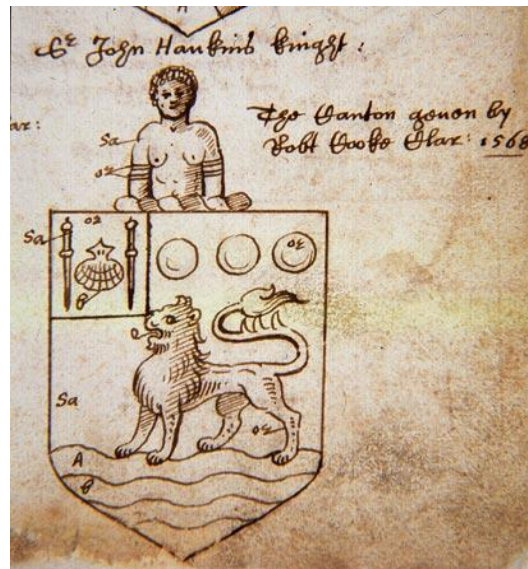 A
Sr John Haukins knight:
The Canton geven by
Robt Cooke Clar: 1568
ar:
Sa
or
or
Sa
or
Sa
or
A
B